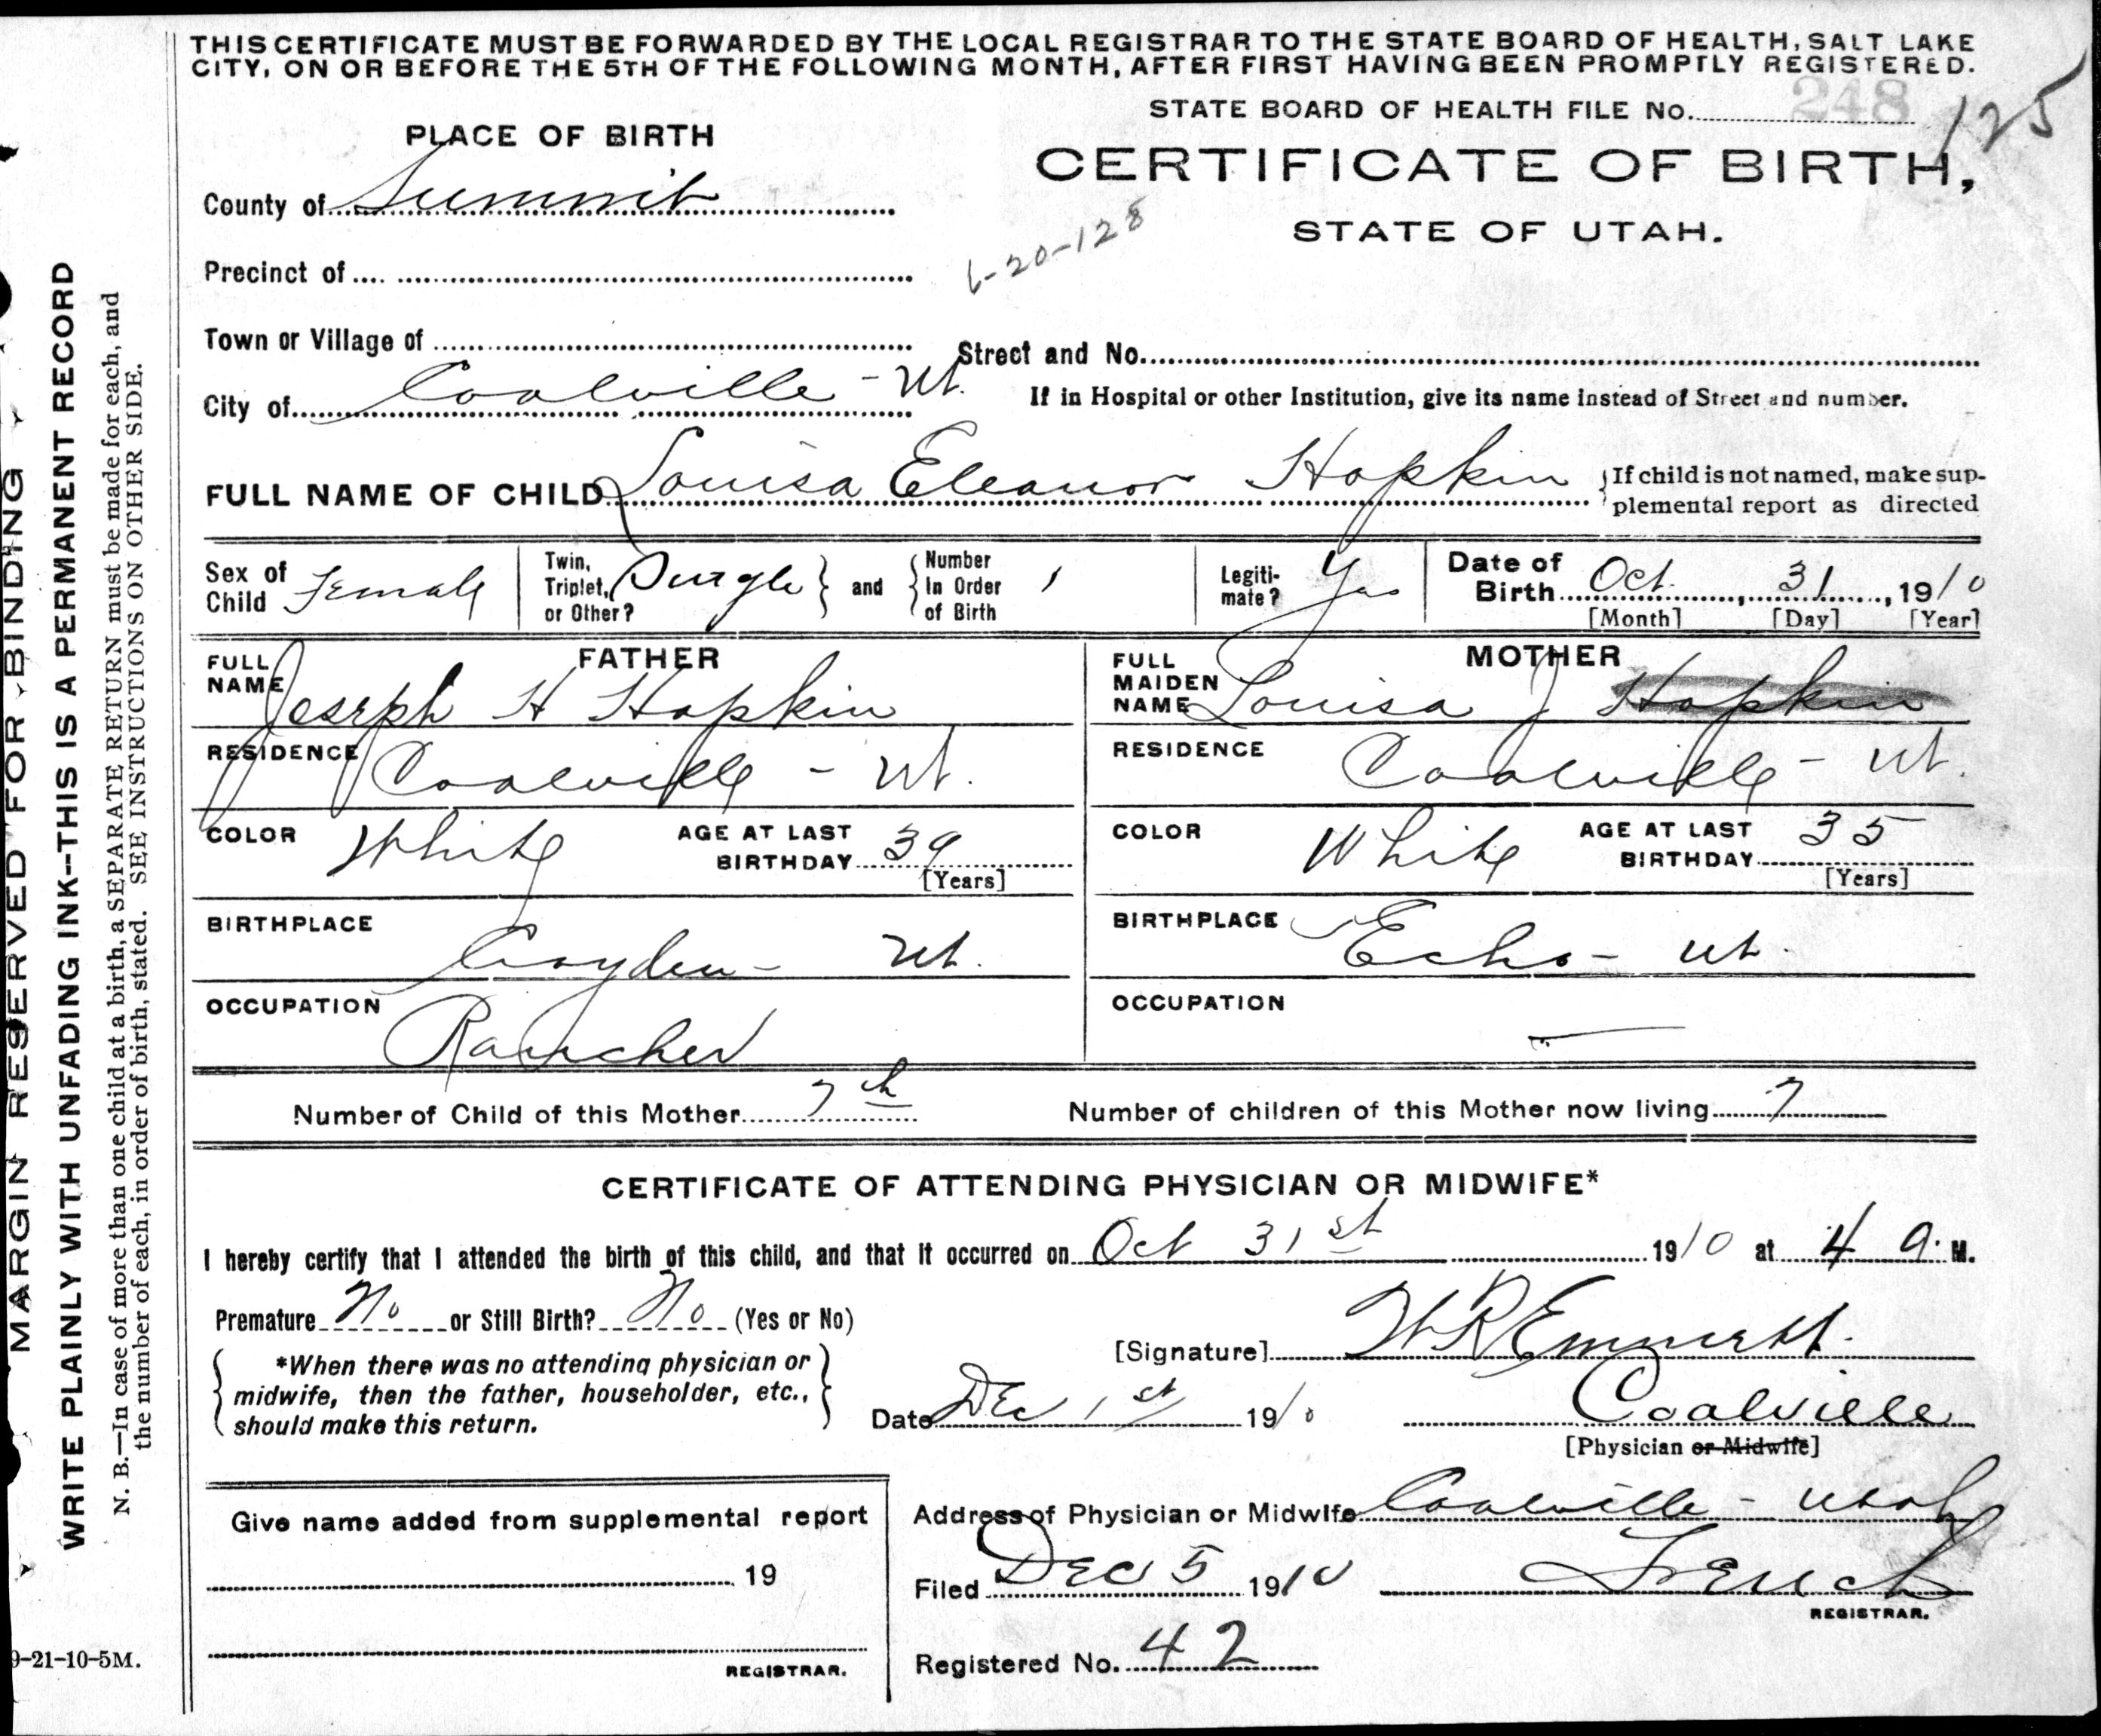 THIS CERTIFICATE MUST BE FORWARDED BY THE LOCAL REGISTRAR TO THE STATE BOARD OF HEALTH, SALT LAKE
CITY, ON OR BEFORE THE 5TH OF THE FOLLOWING MONTH, AFTER FIRST HAVING BEEN PROMPTLY REGISTERED.
STATE BOARD OF HEALTH FILE No. 248 125
PLACE OF BIRTH
CERTIFICATE OF BIRTH,
STATE OF UTAH.
County of Summit
-20-128
Precinct of
Town or Village of
Street and No.
City of Coalville - Ut.
If in Hospital or other Institution, give its name instead of Street and number.
FULL NAME OF CHILD Louisa Eleanor Hopkin
{If child is not named, make sup-
plemental report as directed
Sex of Child Female
Twin, Triplet, or Other? Single } and { Number In Order of Birth 1
Legiti-mate? Yes
Date of Birth Oct. 31, 1910
[Month] [Day] [Year]
FATHER
FULL NAME Joseph H Hopkin
RESIDENCE Coalville - Ut.
COLOR White AGE AT LAST BIRTHDAY 39
[Years]
BIRTHPLACE Croyden - Ut.
OCCUPATION Rancher
MOTHER
FULL MAIDEN NAME Louisa J Hopkin
RESIDENCE Coalville - Ut.
COLOR White AGE AT LAST BIRTHDAY 35
[Years]
BIRTHPLACE Echo - Ut.
OCCUPATION —
Number of Child of this Mother 7th
Number of children of this Mother now living 7
CERTIFICATE OF ATTENDING PHYSICIAN OR MIDWIFE*
I hereby certify that I attended the birth of this child, and that it occurred on Oct 31st 1910 at 4 a. M.
Premature No or Still Birth? No (Yes or No)
{ *When there was no attending physician or
midwife, then the father, householder, etc.,
should make this return. }
[Signature] Emmett.
Date Dec 1st 1910
Coalville
[Physician or Midwife]
Give name added from supplemental report
19
REGISTRAR.
Address of Physician or Midwife Coalville - Utah
Filed Dec 5 1910
REGISTRAR.
Registered No. 42
MARGIN RESERVED FOR BINDING
WRITE PLAINLY WITH UNFADING INK—THIS IS A PERMANENT RECORD
N. B.—In case of more than one child at a birth, a SEPARATE RETURN must be made for each, and
the number of each, in order of birth, stated. SEE INSTRUCTIONS ON OTHER SIDE.
9-21-10-5M.